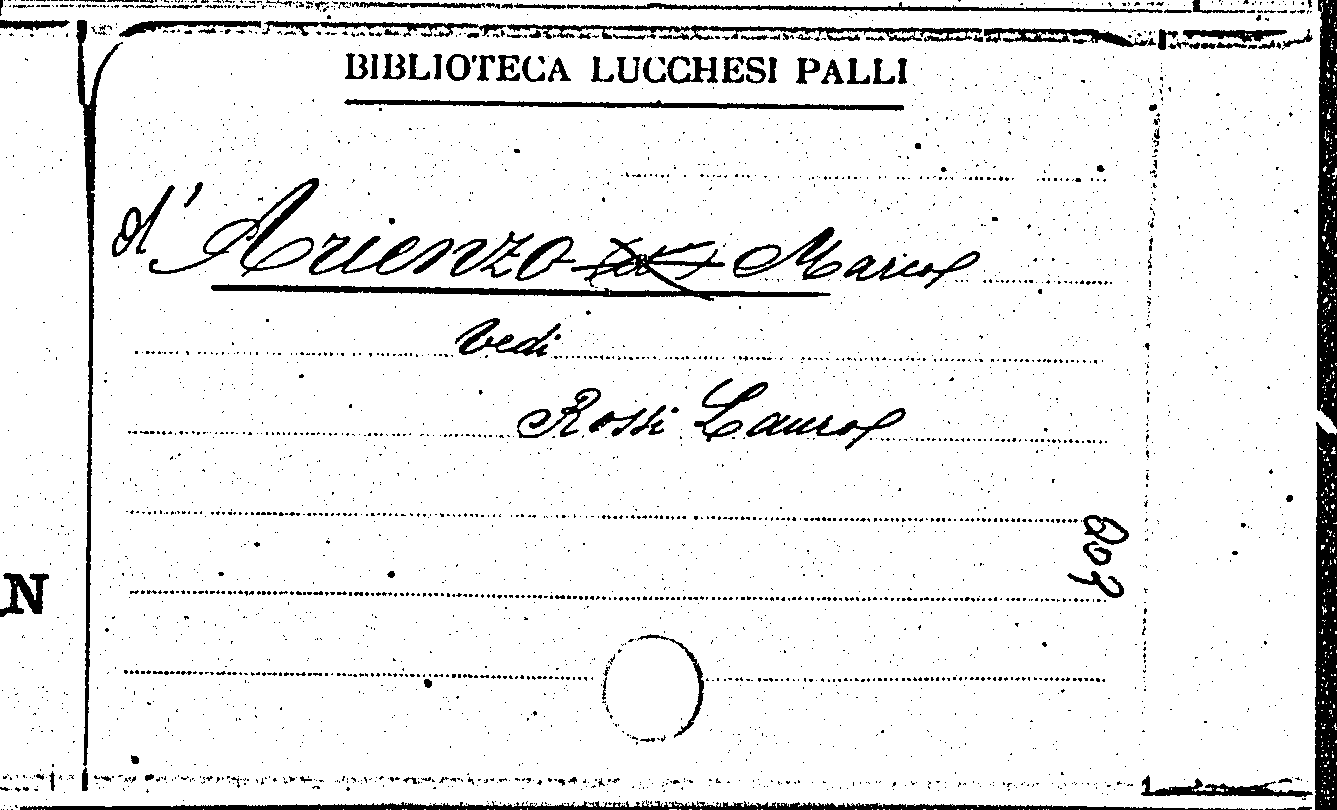 BIBLIOTECA LUCCHESI PALLI
d'Arienzo Marco
Vedi
Rossi Lauro
N